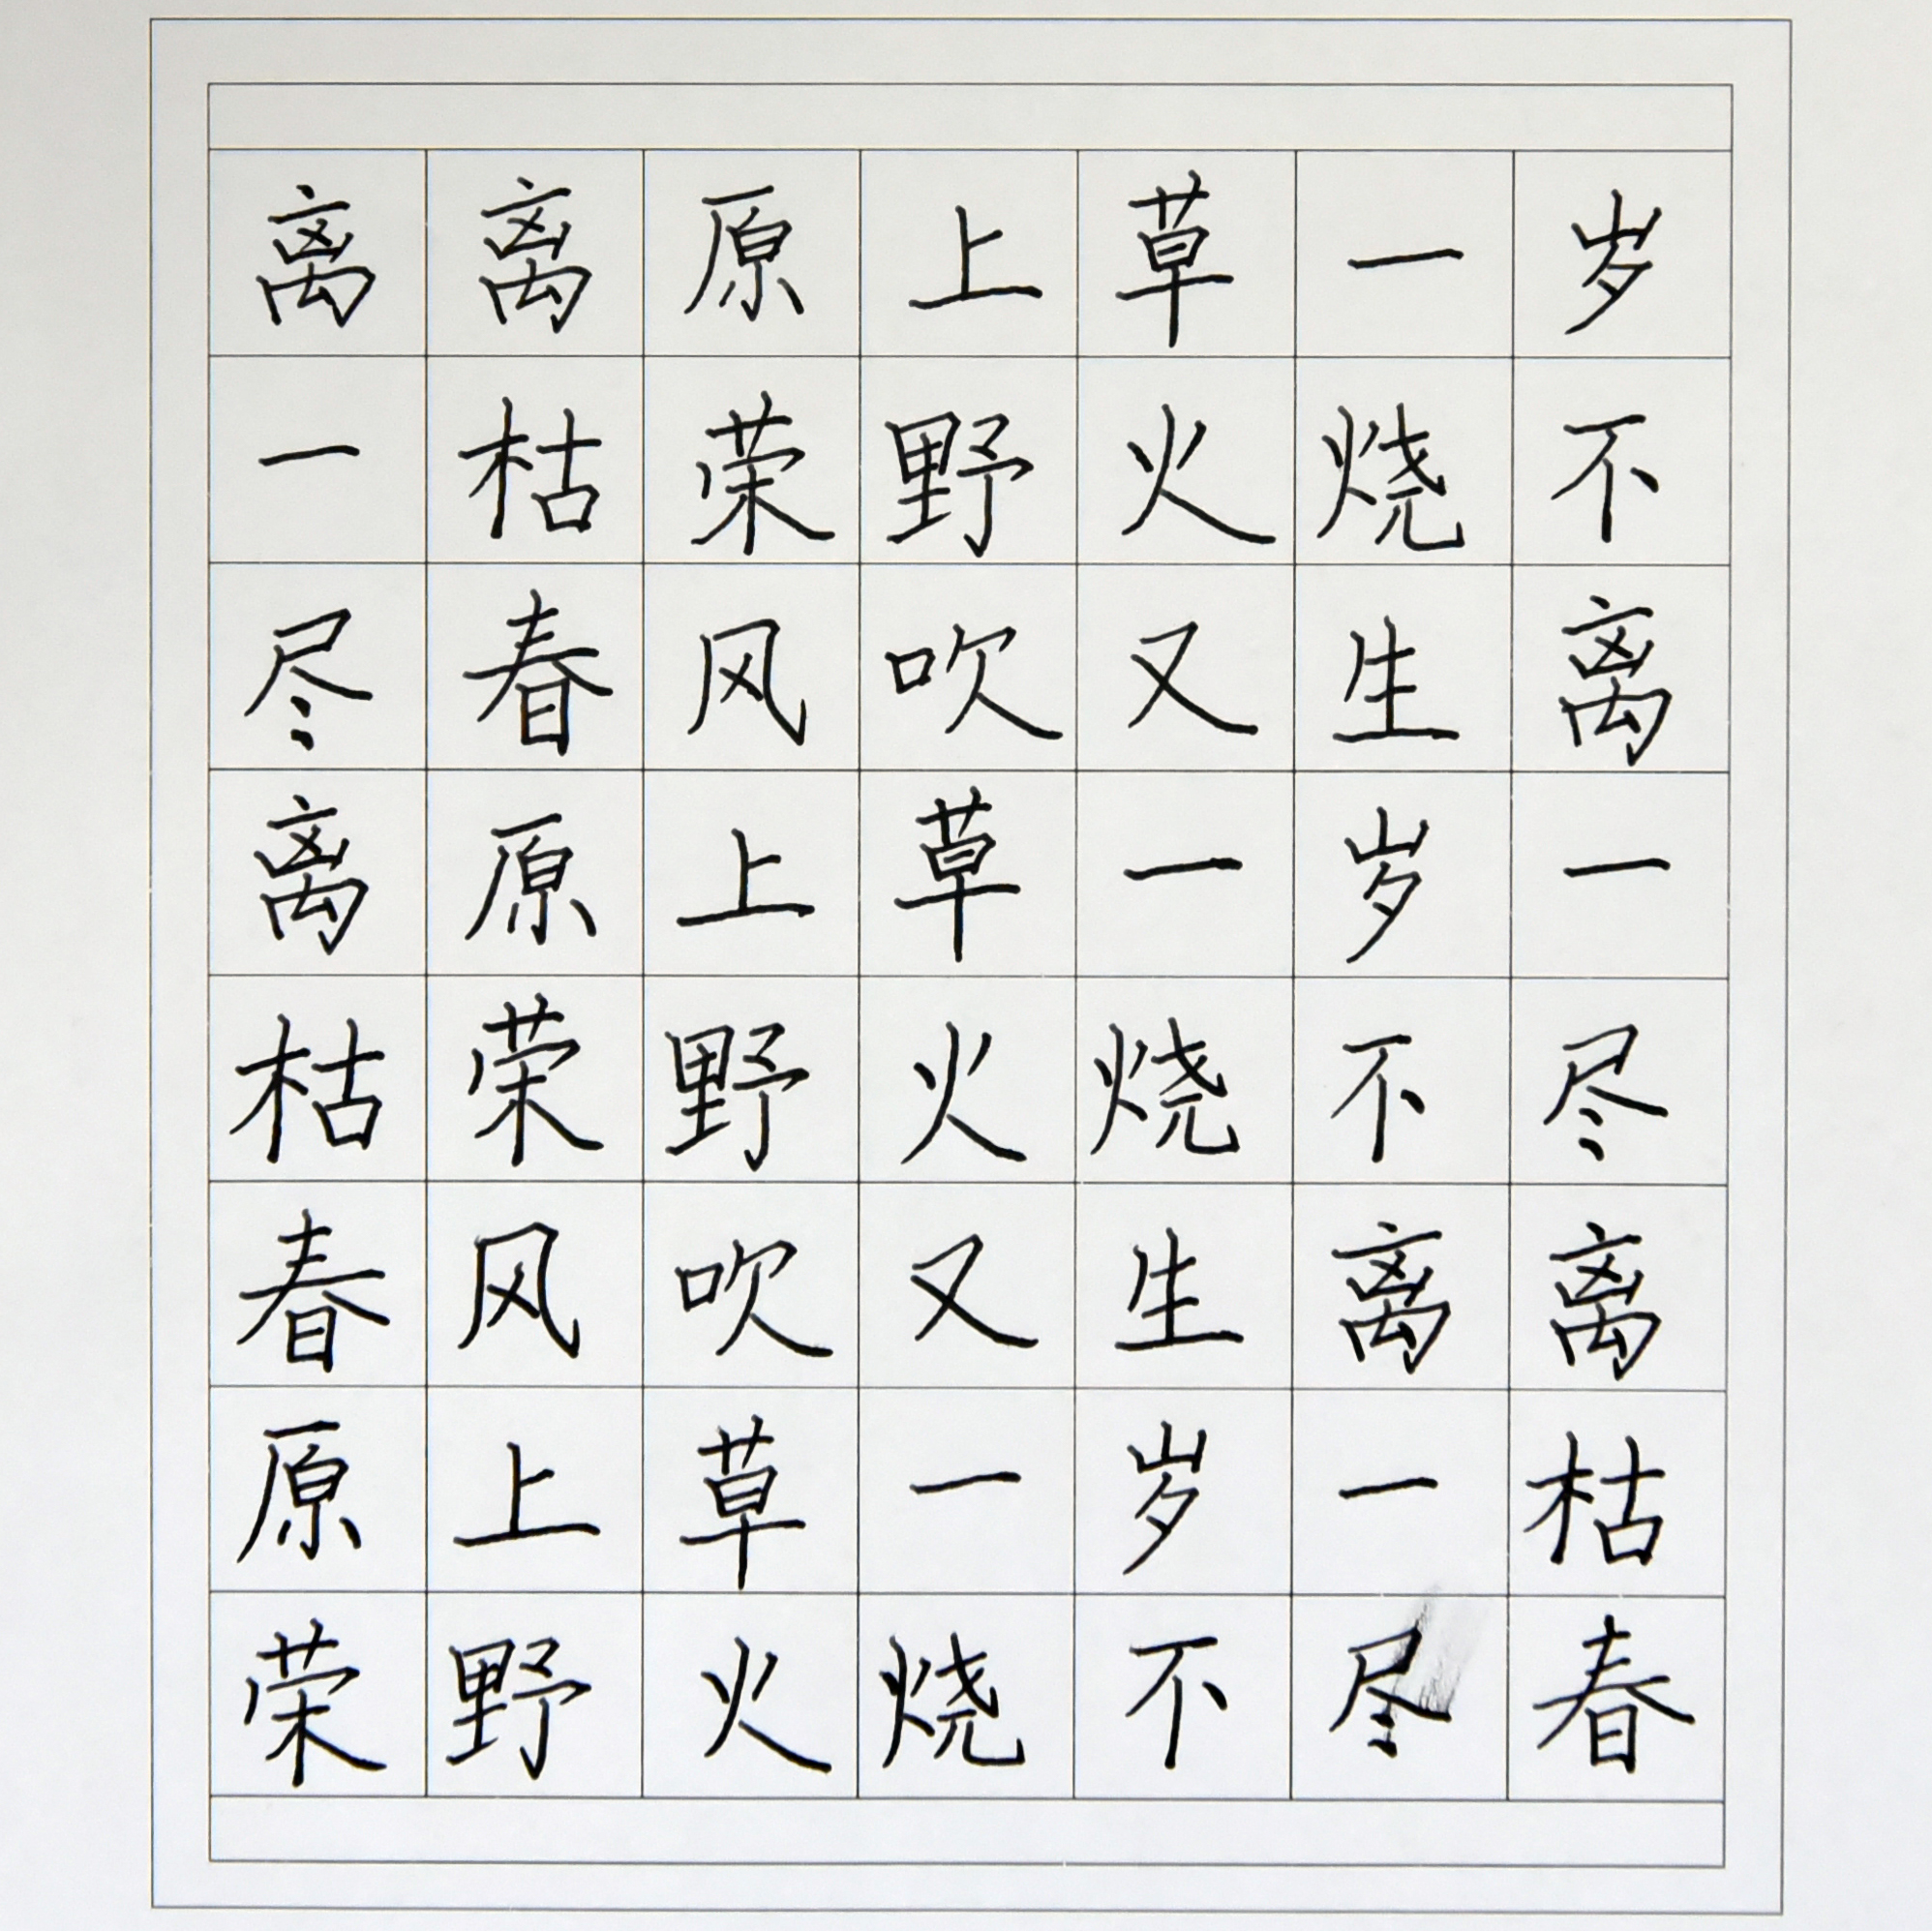 离离原上草一岁
一枯荣野火烧不
尽春风吹又生离
离原上草一岁一
枯荣野火烧不尽
春风吹又生离离
原上草一岁一枯
荣野火烧不尽春